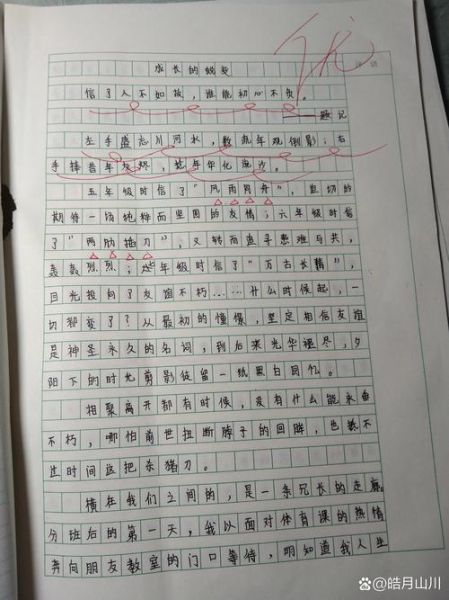 优
评语
成长的蜕变
信了人不如故,谁能初心不负。
——题记
左手盛忘川河水,数执年观倒影;右
手捧昔年灰烬,乾年华化流沙。
五年级时信了"风雨同舟",且切的
期待一场纯粹而坚固的友情;六年级时信
了"两肋插刀",又转而追寻患难与共,
轰轰烈烈;七年级时信了"万古长情",
目光投向了友谊不朽……什么时候起,一
切都变了?从最初的憧憬,坚定相信友谊
是神圣永久的名词,到后来光华褪尽,夕
阳下的时光剪影徒留一纸黑白回忆。
相聚离开都有时候,没有什么能永垂
不朽,哪怕前世扭断脖子的回眸,也敌不
过时间这把杀猪刀。
横在我们之间的,是一条冗长的走廊。
分班后的第一天,我以面对体育课的热情
奔向朋友教室的门口等待,明知道我人生
@皓月山川